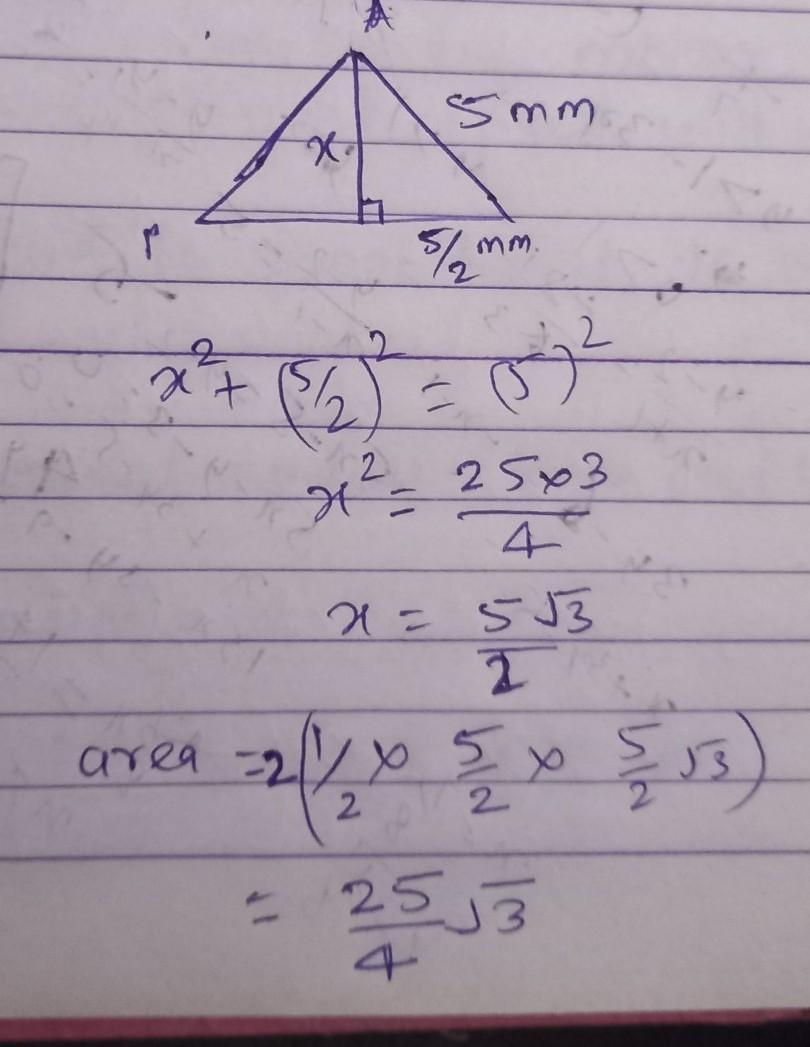 A
5 mm
x
P
5/2 mm
x² + (5/2)² = (5)²
x² = 25×3/4
x = 5√3/2
area = 2(1/2 × 5/2 × 5/2 √3)
= 25/4 √3